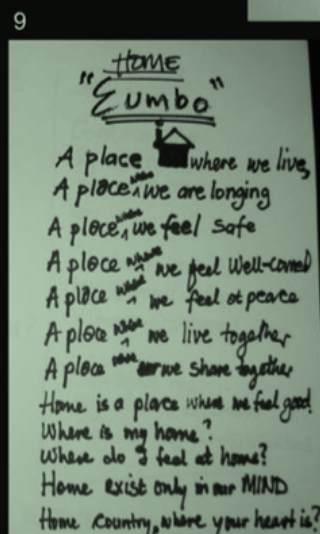 9
HOME
"Eumbo"
A place where we live,
A place where we are longing
A place where we feel safe
A place where we feel well-comed
A place where we feel at peace
A place where we live together
A place where we share together
Home is a place where we feel good.
Where is my home?
Where do I feel at home?
Home exist only in our MIND
Home country, where your heart is?